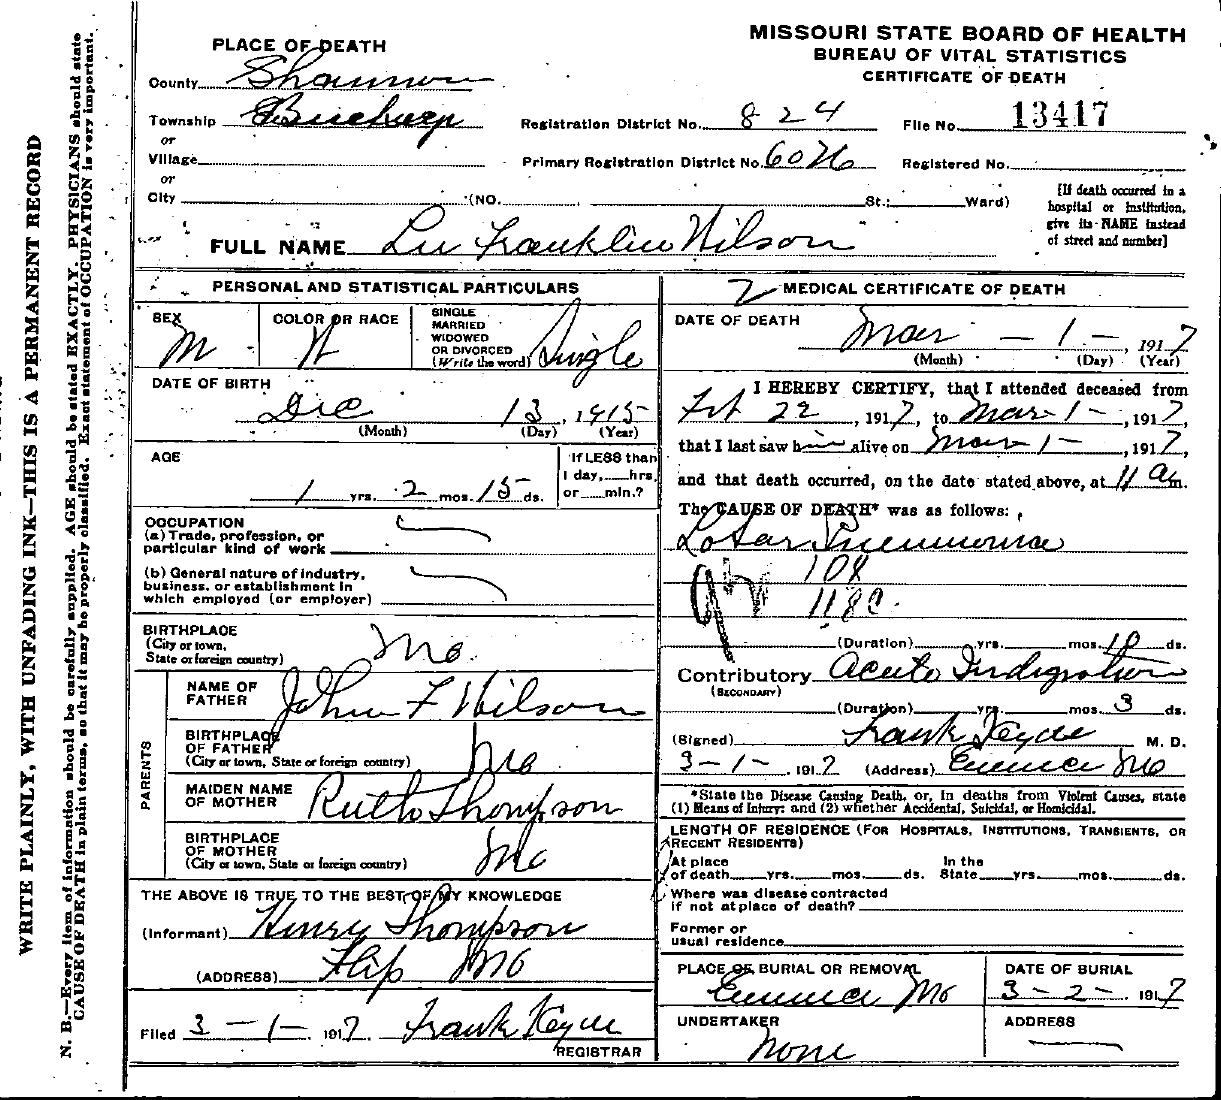 MISSOURI STATE BOARD OF HEALTH
BUREAU OF VITAL STATISTICS
CERTIFICATE OF DEATH
PLACE OF DEATH
County Shannon
Township
Registration District No. 824
File No. 13417
or
Village
Primary Registration District No.
Registered No.
or
City (NO. St.; Ward)
[If death occurred in a
hospital or institution,
give its NAME instead
of street and number]
FULL NAME Franklin Wilson
PERSONAL AND STATISTICAL PARTICULARS
SEX M
COLOR OR RACE W
SINGLE
MARRIED
WIDOWED
OR DIVORCED
(Write the word) Single
DATE OF BIRTH
Dec 13, 1915
(Month) (Day) (Year)
AGE
1 yrs. 2 mos. 15 ds.
If LESS than
1 day, hrs.
or min.?
OCCUPATION
(a) Trade, profession, or
particular kind of work
(b) General nature of industry,
business, or establishment in
which employed (or employer)
BIRTHPLACE
(City or town,
State or foreign country) Mo.
PARENTS
NAME OF
FATHER John F Wilson
BIRTHPLACE
OF FATHER
(City or town, State or foreign country) Mo
MAIDEN NAME
OF MOTHER Ruth Thompson
BIRTHPLACE
OF MOTHER
(City or town, State or foreign country) Mo
THE ABOVE IS TRUE TO THE BEST OF MY KNOWLEDGE
(Informant) Henry Thompson
(ADDRESS) Flip Mo
Filed 3-1-1917 Frank
REGISTRAR
2 MEDICAL CERTIFICATE OF DEATH
DATE OF DEATH
Mar - 1 -, 1917
(Month) (Day) (Year)
I HEREBY CERTIFY, that I attended deceased from
Feb 22, 1917, to Mar 1 -, 1917,
that I last saw him alive on Mar 1 -, 1917,
and that death occurred, on the date stated above, at 11 am.
The CAUSE OF DEATH* was as follows:
Lobar Pneumonia
108
(Duration) yrs. mos. 10 ds.
Contributory Acute Indigestion
(SECONDARY)
(Duration) yrs. mos. 3 ds.
(Signed) Frank M. D.
3-1-, 1917 (Address) Eminence Mo
*State the Disease Causing Death, or, in deaths from Violent Causes, state
(1) Means of Injury; and (2) whether Accidental, Suicidal, or Homicidal.
LENGTH OF RESIDENCE (FOR HOSPITALS, INSTITUTIONS, TRANSIENTS, OR
RECENT RESIDENTS)
At place In the
of death yrs. mos. ds. State yrs. mos. ds.
Where was disease contracted
if not at place of death?
Former or
usual residence
PLACE OF BURIAL OR REMOVAL
Eminence Mo
DATE OF BURIAL
3-2-, 1917
UNDERTAKER
None
ADDRESS
WRITE PLAINLY, WITH UNFADING INK—THIS IS A PERMANENT RECORD
N. B.—Every item of information should be carefully supplied. AGE should be stated EXACTLY. PHYSICIANS should state
CAUSE OF DEATH in plain terms, so that it may be properly classified. Exact statement of OCCUPATION is very important.